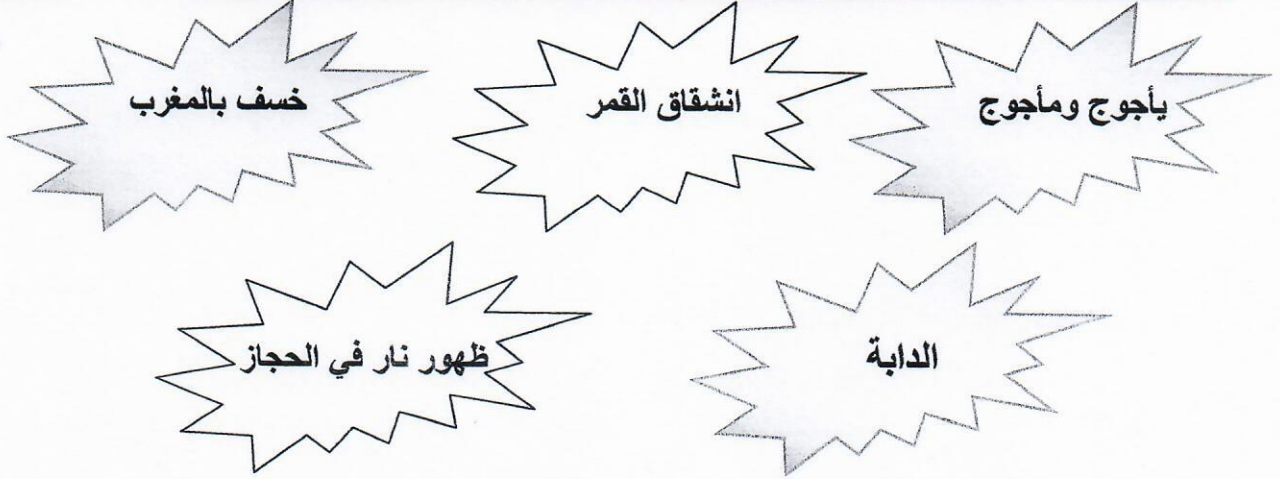 يأجوج ومأجوج
انشقاق القمر
خسف بالمغرب
الدابة
ظهور نار في الحجاز